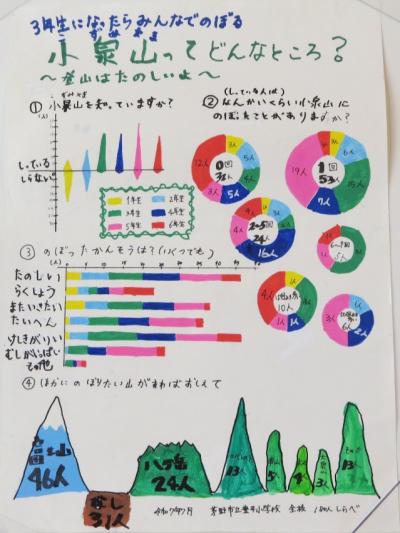 3年生になったらみんなでのぼる
こずみやま
小泉山ってどんなところ?
〜登山はたのしいよ〜
① 小泉山を知っていますか?
(人)
しっている
しらない
1年生 2年生
3年生 4年生
5年生 6年生
② (しっている人は)
なんかいくらい小泉山に
のぼったことがありますか?
0回
1回
53人
12人
3人
5人
4人
5人
3人
19人
7人
15人
6人
2~5回
24人
16人
10人
6人
③ のぼったかんそうは?(いくつでも)
(人)
たのしい
らくしょう
またいきたい
たいへん
けしきがいい
むしがいっぱい
その他
④ ほかにのぼりたい山があればおしえて
富士山
46人
なし
31人
八ヶ岳
24人
13人
3人
令和7年7月 茅野市立豊平小学校 全校 180人しらべ